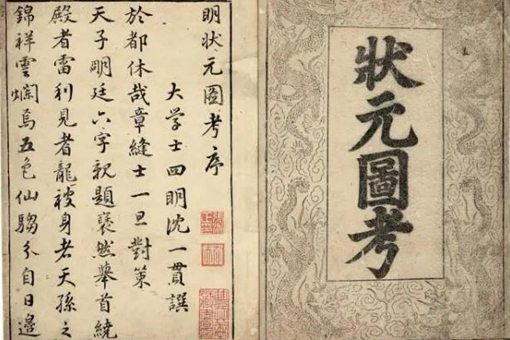 狀元圖考
明狀元圖考序
大学士四明沈一貫譔
於都休哉章縫士一旦對策
天子明廷六字親題褎然舉首繞
殿者雷利見者龍被身者天孫之
錦祥雲爛焉五色仙騶分自日邊